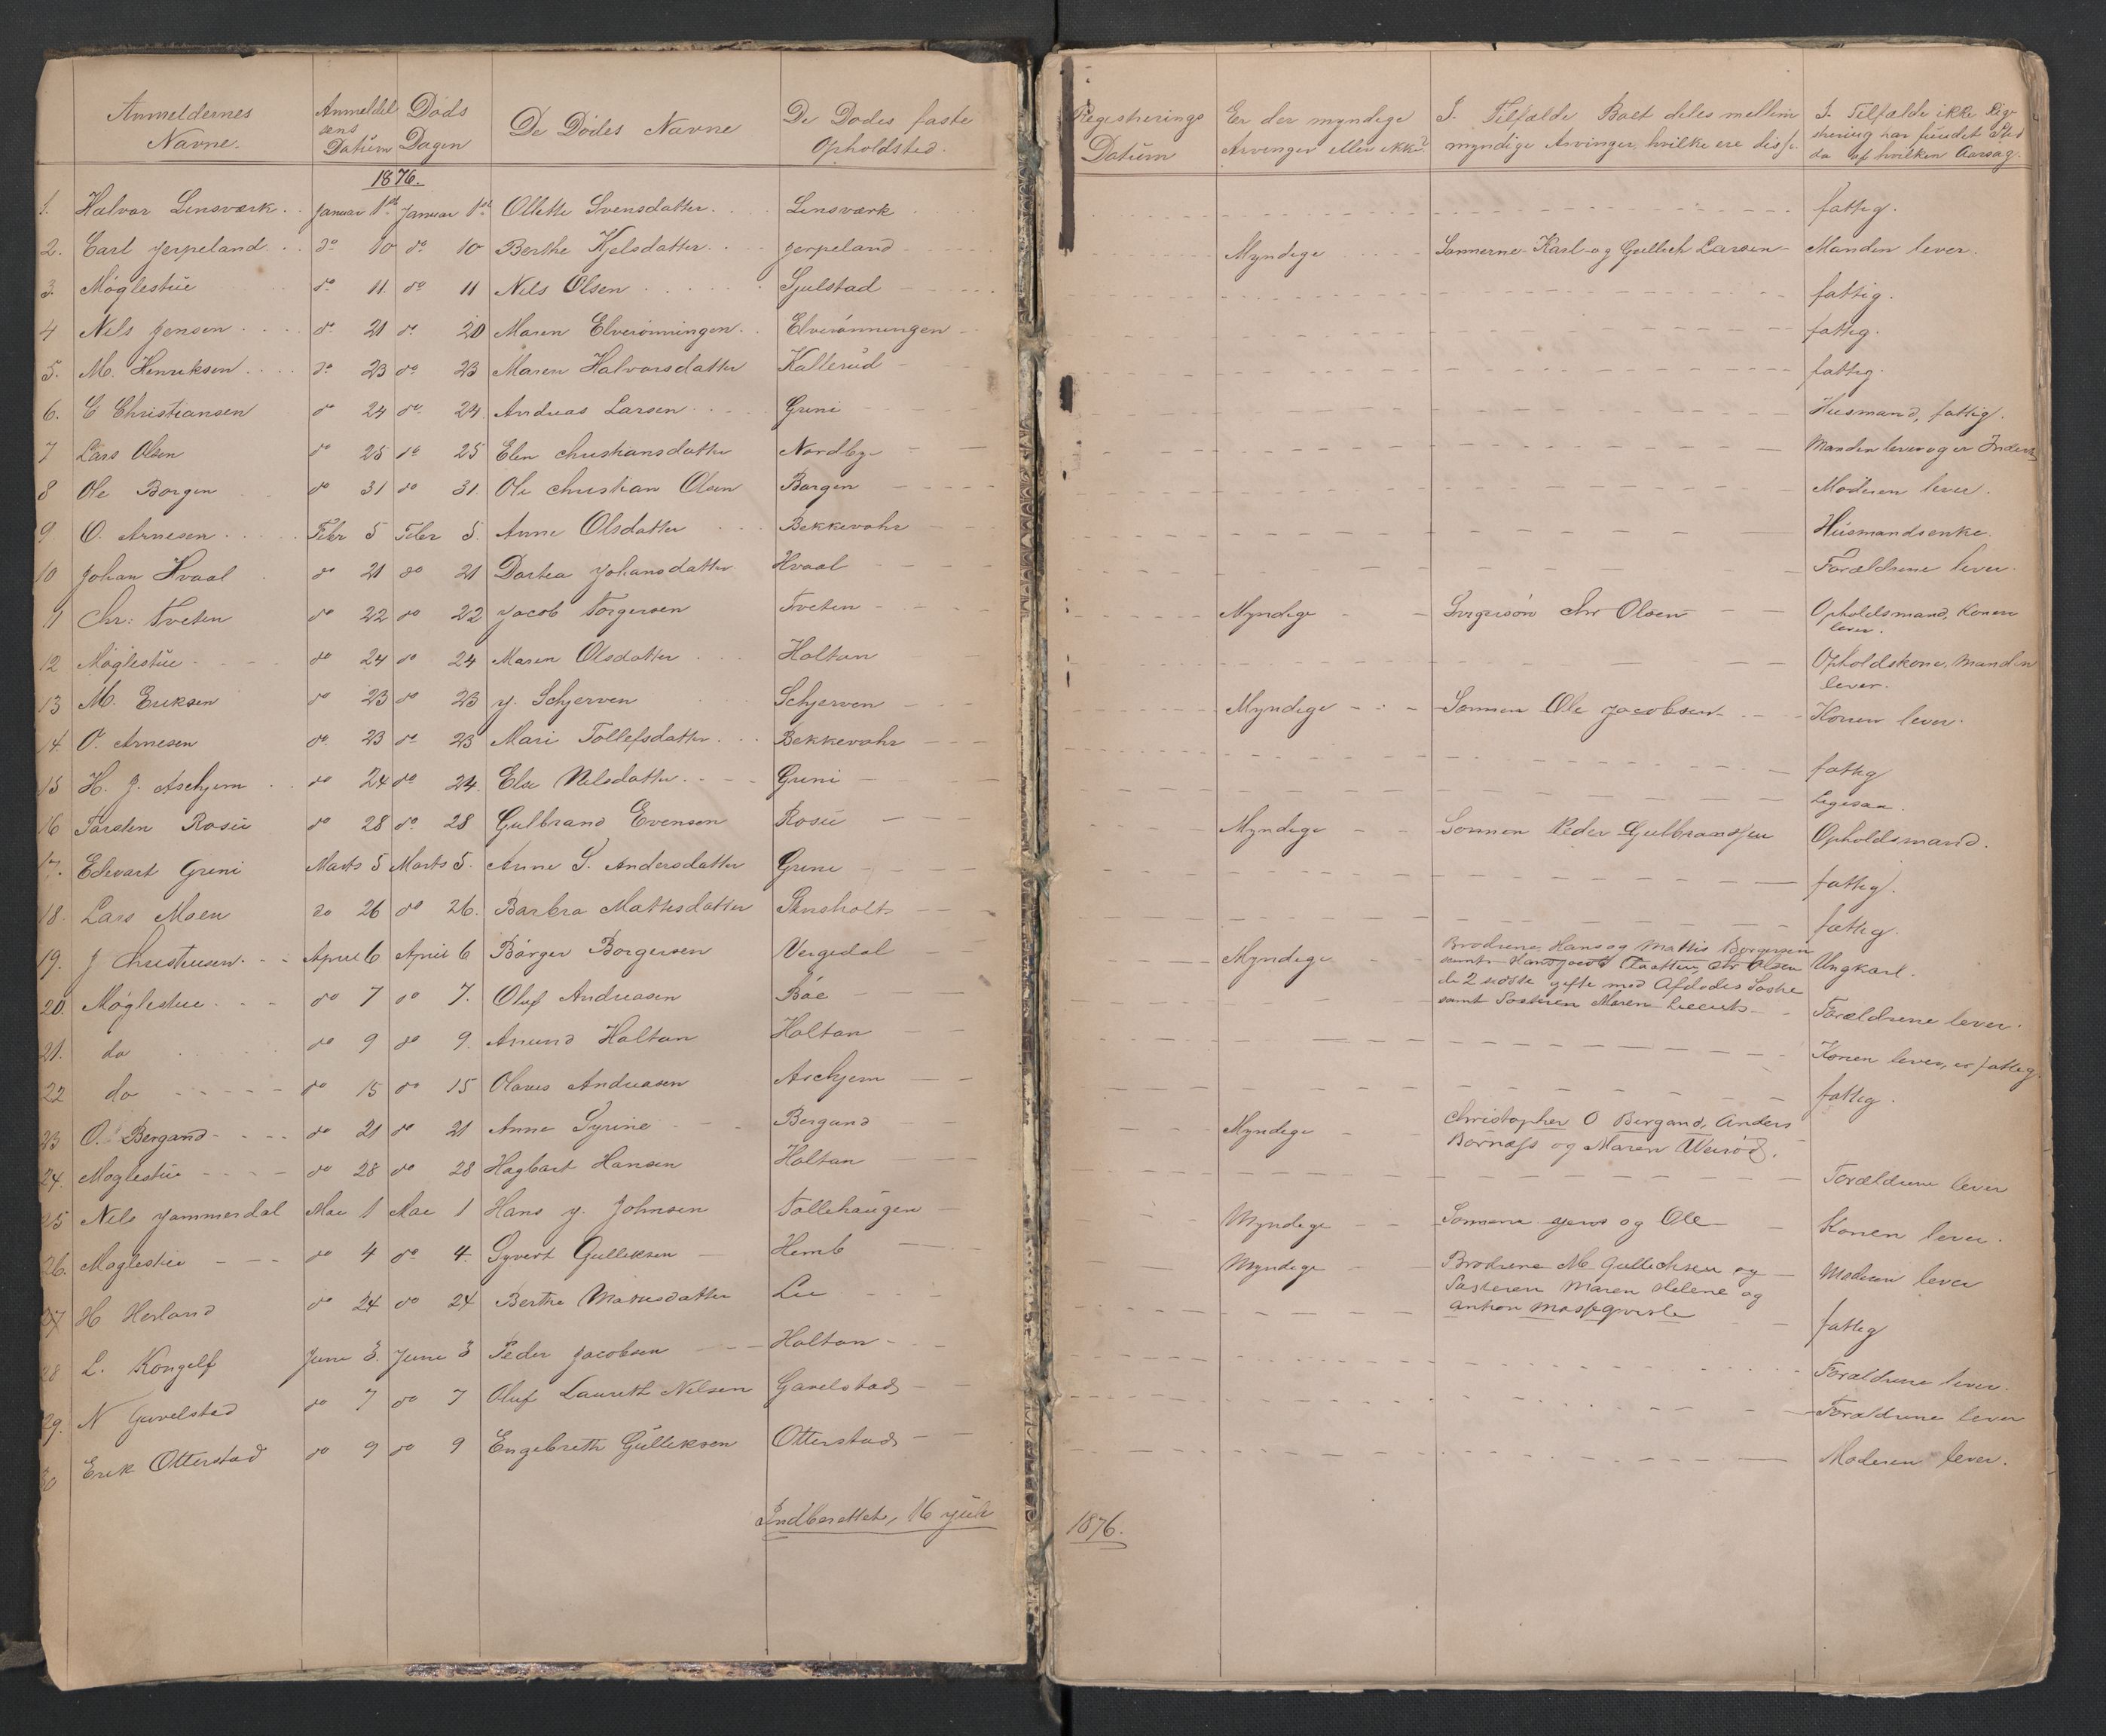 Anmeldernes Navne. | Anmeldelsens Datum | Døds Dagen | De Dødes Navne | De Dødes faste Opholdsted. | Registrerings Datum | Er der myndige Arvinger eller ikke? | I Tilfælde Boet deles mellem myndige Arvinger, hvilke ere disse. | I Tilfælde ikke Registrering har fundet Sted da af hvilken Aarsag.
1876.
1. Halvor Linsværk. Januar 1st Januar 1st Ollette Svensdatter. Linsværk fattig.
2. Carl Jerpeland do 10 do 10 Berthe Kjelsdatter. Jerpeland Myndige Sønnerne Karl og Gullich Larsen Manden lever.
3. Møglestue do 11. do 11 Nils Olsen Sjulstad fattig.
4 Nils Jensen do 21 do 20 Maren Elverønningen. Elverønningen fattig.
5. M. Henriksen do 23 do 23 Maren Halvorsdatter Kallerud fattig.
6. C Christiansen do 24 do 24. Andreas Larsen Greni Husmand, fattig.
7 Lars Olsen do 25 do 25 Elen Christiansdatter Nordby Manden lever og er
8 Ole Borgen do 31 do 31. Ole Christian Olsen Borgen Moderen lever.
9 O. Arnesen Febr 5 Febr 5. Anne Olsdatter Bekkevahr Husmandsenke.
10 Johan Hvaal do 21 do 21 Dortea Johansdatter Hvaal Forældrene lever.
11 Chr: Tveten do 22 do 22 Jacob Torgersen Tveten Myndige Chr Olsen Opholdsmand, Konen
lever.
12 Møglestue do 24 do 24 Maren Olsdatter Holtan Opholdskone, Manden
lever.
13 M. Eriksen do 23 do 23 J. Schjerven Schjerven Myndige Sønnen Ole Jacobsen Konen lever.
14. O. Arnesen do 23 do 23 Mari Tollefsdatter. Bekkevahr fattig
15 H. J. Aschjem do 24 do 24. Else Nilsdatter. Greni Ligesaa.
16 Torsten Rosu do 28 do 28 Gulbrand Evensen Rosu Myndige Sønnen Peder Gulbrandsen Opholdsmand.
17. Edvart Greni Marts 5 Marts 5. Anne S. Andersdatter Greni fattig.
18. Lars Moen do 26 do 26. Barbra Mattisdatter fattig.
19. J Christensen. April 6 April 6 Børger Borgersen Vergedal Myndige Brødrene Hans og Mattis Borgersen Ungkarl.
samt Hans Jacob Chr Olsen
de 2 sidste gifte med Afdødes Søstre
samt Søsteren Maren
20. Møglestue do 7 do 7. Oluf Andreasen Bøe Forældrene lever.
21. do do 9 do 9. Amund Holtan Holtan Konen lever, er fattig.
22 do do 15 do 15 Olaves Andreasen Aschjem fattig.
23 O. Bergand do 21 do 21 Anne Syrine Bergand Myndige Christopher O Bergand, Anders
Børnæss og Maren
24. Møglestue do 28 do 28 Hagbart Hansen Holtan Forældrene lever
25 Nils Jammerdal Mai 1 Mai 1 Hans J. Johnsen Tollehaugen Myndige Sønnene Jens og Ole Konen lever.
26. Møglestue do 4 do 4. Syvert Gulleksen Hemb Myndige Brødrene M Gullichsen og Moderen lever
Søsteren Maren Helene og
Anton
27 H Herland do 24 do 24 Berthe Mattisdatter Lie fattig
28 L. Kongelf Juni 3. Juni 3 Peder Jacobsen Holtan Forældrene lever.
29. N Gavelstad do 7 do 7 Oluf Laurith Nilsen Gavelstad Forældrene lever
30 Erik Otterstad do 9 do 9 Engebreth Gulleksen Otterstad Moderen lever.
Indberettet, 16 Juli 1876.